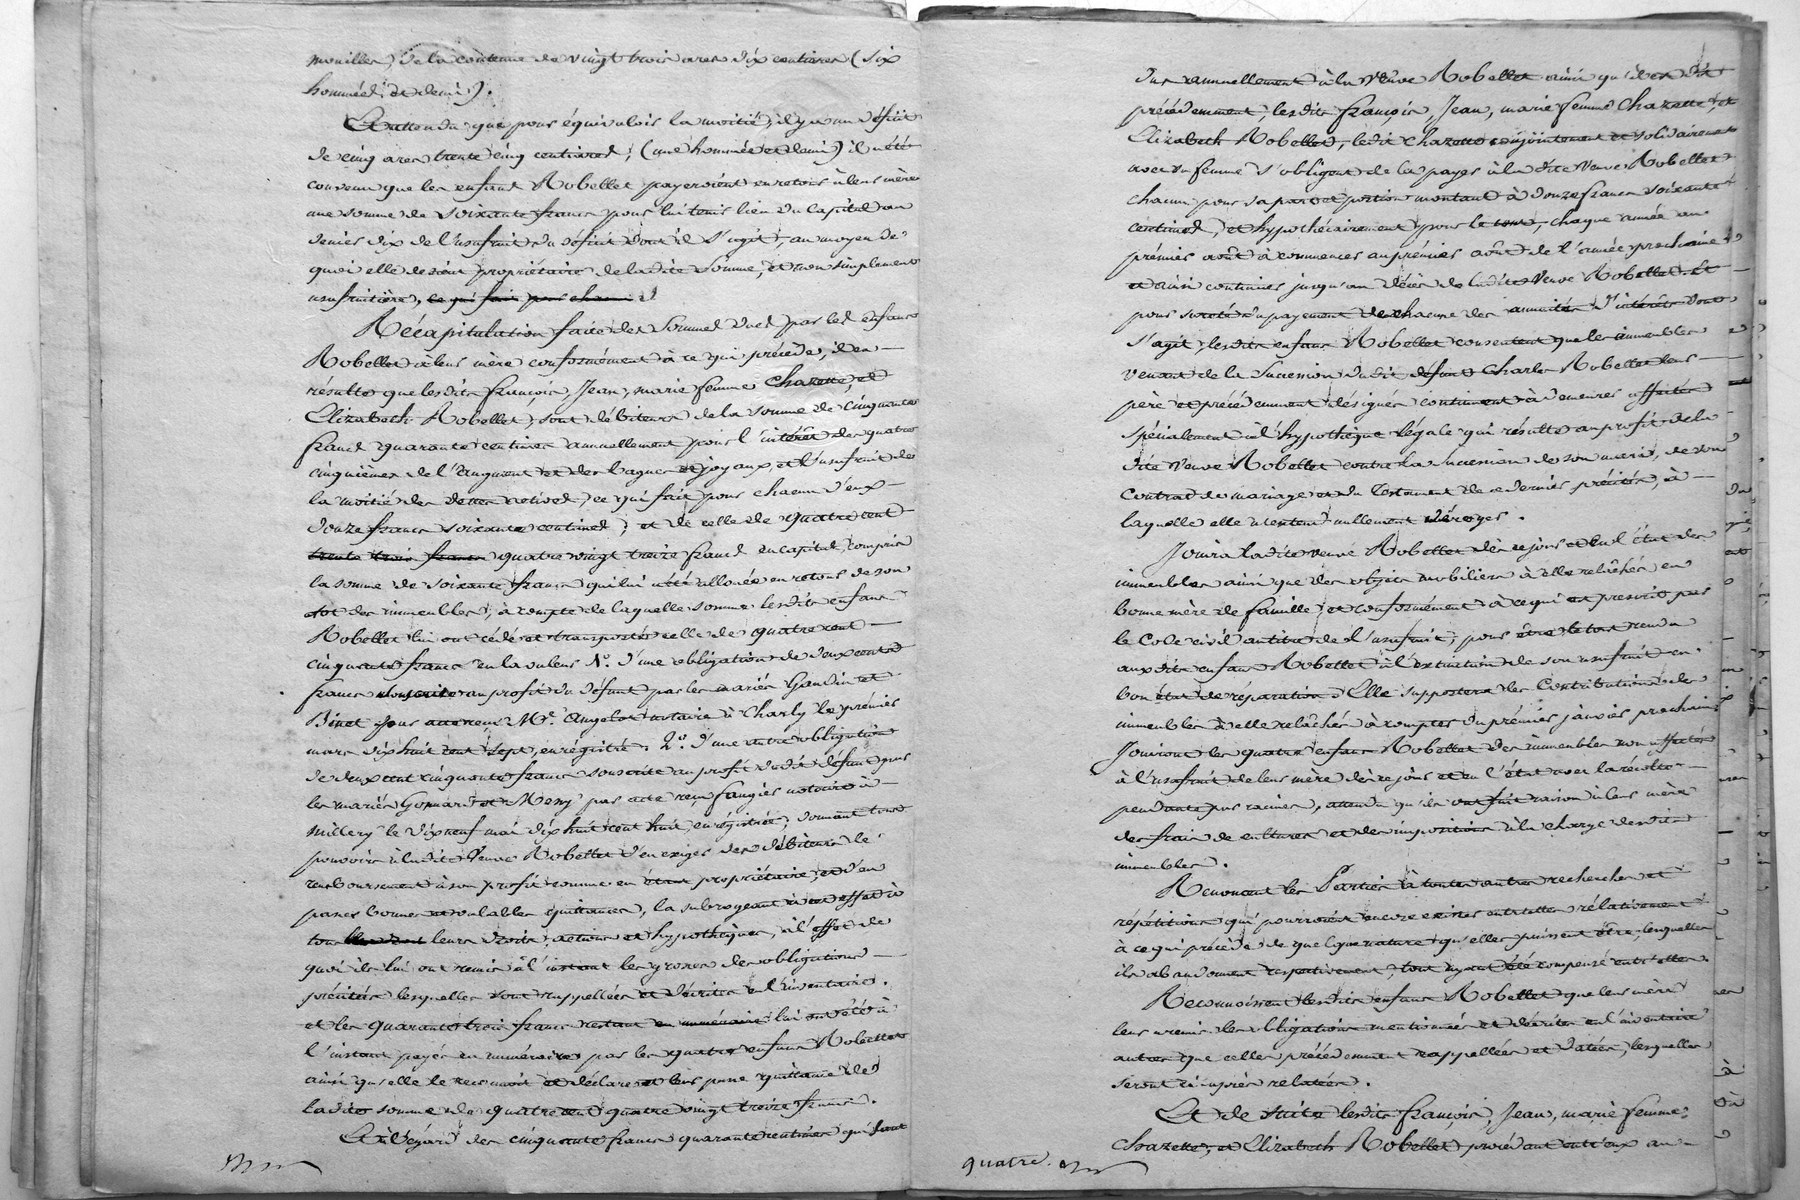 mouilles, de la contenue de vingt trois ares dix centiares (six
hommées et demi).
Et attendu que pour équivaloir la moitié, il y a un déficit
de cinq ares trente cinq centiares, (une hommée et demi) il a été
convenu que les enfant Robellet payeroient en retour à leur mère
une somme de soixante francs pour lui tenir lieu du capital au
denier dix de l'usufruit du déficit dont il s'agit, au moyen de
quoi elle devient propriétaire de ladite somme, et non simplement
usufruitière, ce qui fait pour chacun
Récapitulation faite des sommes dues par les enfans
Robellet à leur mère conformément à ce qui précède, il en
résulte que lesdits françois, Jean, marie femme Chazette, et
Elizabeth Robellet, sont débiteurs de la somme de cinquante
francs quarante centimes annuellement pour l'intérêt des quatre
cinquièmes de l'augment et des bagues et joyaux, et l'usufruit de
la moitié des dettes actives, ce qui fait pour chacun d'eux
douze francs soixante centimes; et de celle de quatre cent
trente trois francs quatre vingt treize francs en capital, compris
la somme de soixante francs qui lui a été allouée en retour de son
lot des immeubles, à compte de laquelle somme lesdits enfans
Robellet lui ont cédé et transporté celle de quatre cent
cinquante francs en la valeur 1º. d'une obligation de deux cents
francs souscrite au profit du défunt par les mariés Gaudin et
Binet pour acte reçu Me. Angelot notaire à Charly le premier
mars dix huit cent sept, enrégistré. 2º. d'une autre obligation
de deux cent cinquante francs souscrite au profit dudit défunt par
les mariés Gonnard et Meny par acte reçu fangier notaire à
millery le dix neuf mai dix huit cent huit, enrégistrée, donnant tout
pouvoir à ladite Veuve Robellet d'en exiger des débiteurs le
remboursement à son profit comme en étant propriétaire, et d'en
passer bonnes et valables quittances, la subrogeant à cet effet à
tous leurs droits, actions et hypothèques, à l'effet de
quoi ils lui ont remis à l'instant les grosses des obligations
précitées lesquelles sont rappellées et décrites en l'inventaire.
et les quarante trois francs restant en numéraire lui ont été à
l'instant payés en numéraire par les quatre enfans Robellet
ainsi qu'elle le reconnoit et déclare et leur passe quittance de
ladite somme de quatre cent quatre vingt treize francs.
Et à l'égard des cinquante francs quarante centimes qui sont
dus annuellement à la Veuve Robellet ainsi qu'il est dit
précédemment, lesdits françois, Jean, marie femme Chazette, et
Elizabeth Robellet, ledit Chazette conjointement et solidairement
avec sa femme s'obligent de la payer à la dite Veuve Robellet
chacun pour sa part et portion montant à douze francs soixante
centimes, et hypothécairement pour le tout, chaque année au
premier août à commencer au premier août de l'année prochaine
et ainsi continuer jusqu'au décès de ladite Veuve Robellet. Et
pour sureté du payement de chacune des annuités d'intérêts dont
s'agit, lesdits enfans Robellet consentent que les immeubles
venant de la succession dudit défunt Charles Robellet leur
père et précédemment désignés continuent à demeurer affectés
spécialement à l'hypothèque légale qui résulte au profit de la
dite Veuve Robellet contre la succession de son mari, de son
contrat de mariage et du testament de ce dernier précités, à
laquelle elle n'entend nullement déroger.
Jouira ladite veuve Robellet dès ce jour et en l'état des
immeubles ainsi que des objets mobiliers à elle relâchés en
bonne mère de famille, et conformément à ce qui est prescrit par
le Code civil au titre de l'usufruit, pour être le tout rendu
auxdits enfans Robellet à l'extinction de son usufruit en
bon état de réparation. Elle supportera les contributions des
immeubles à elle relâchés à compter du premier janvier prochain
Jouiront les quatre enfans Robellet des immeubles non affectés
à l'usufruit de leur mère dès ce jour et en l'état avec la récolte
pendante par racines, attendu qu'ils ont fait raison à leur mère
des frais de cultures et des impositions à la charge desdits
immeubles.
Renonçant les Parties à toutes autres recherches et
répétitions qui pourroient encore exister entr'elles rélativement
à ce qui précède de quelque nature qu'elles puissent être, lesquelles
ils abandonnent respectivement, tout ayant été compensé entr'elles.
Reconnoissent lesdits enfans Robellet que leur mère
leur a remis les obligations mentionnées et décrites en l'inventaire
autres que celles précédemment rappellées et datées, lesquelles
seront ci après relatées.
Et de suite lesdits françois, Jean, marie femme
Chazette, et Elizabeth Robellet, procédant entr'eux au
quatre.